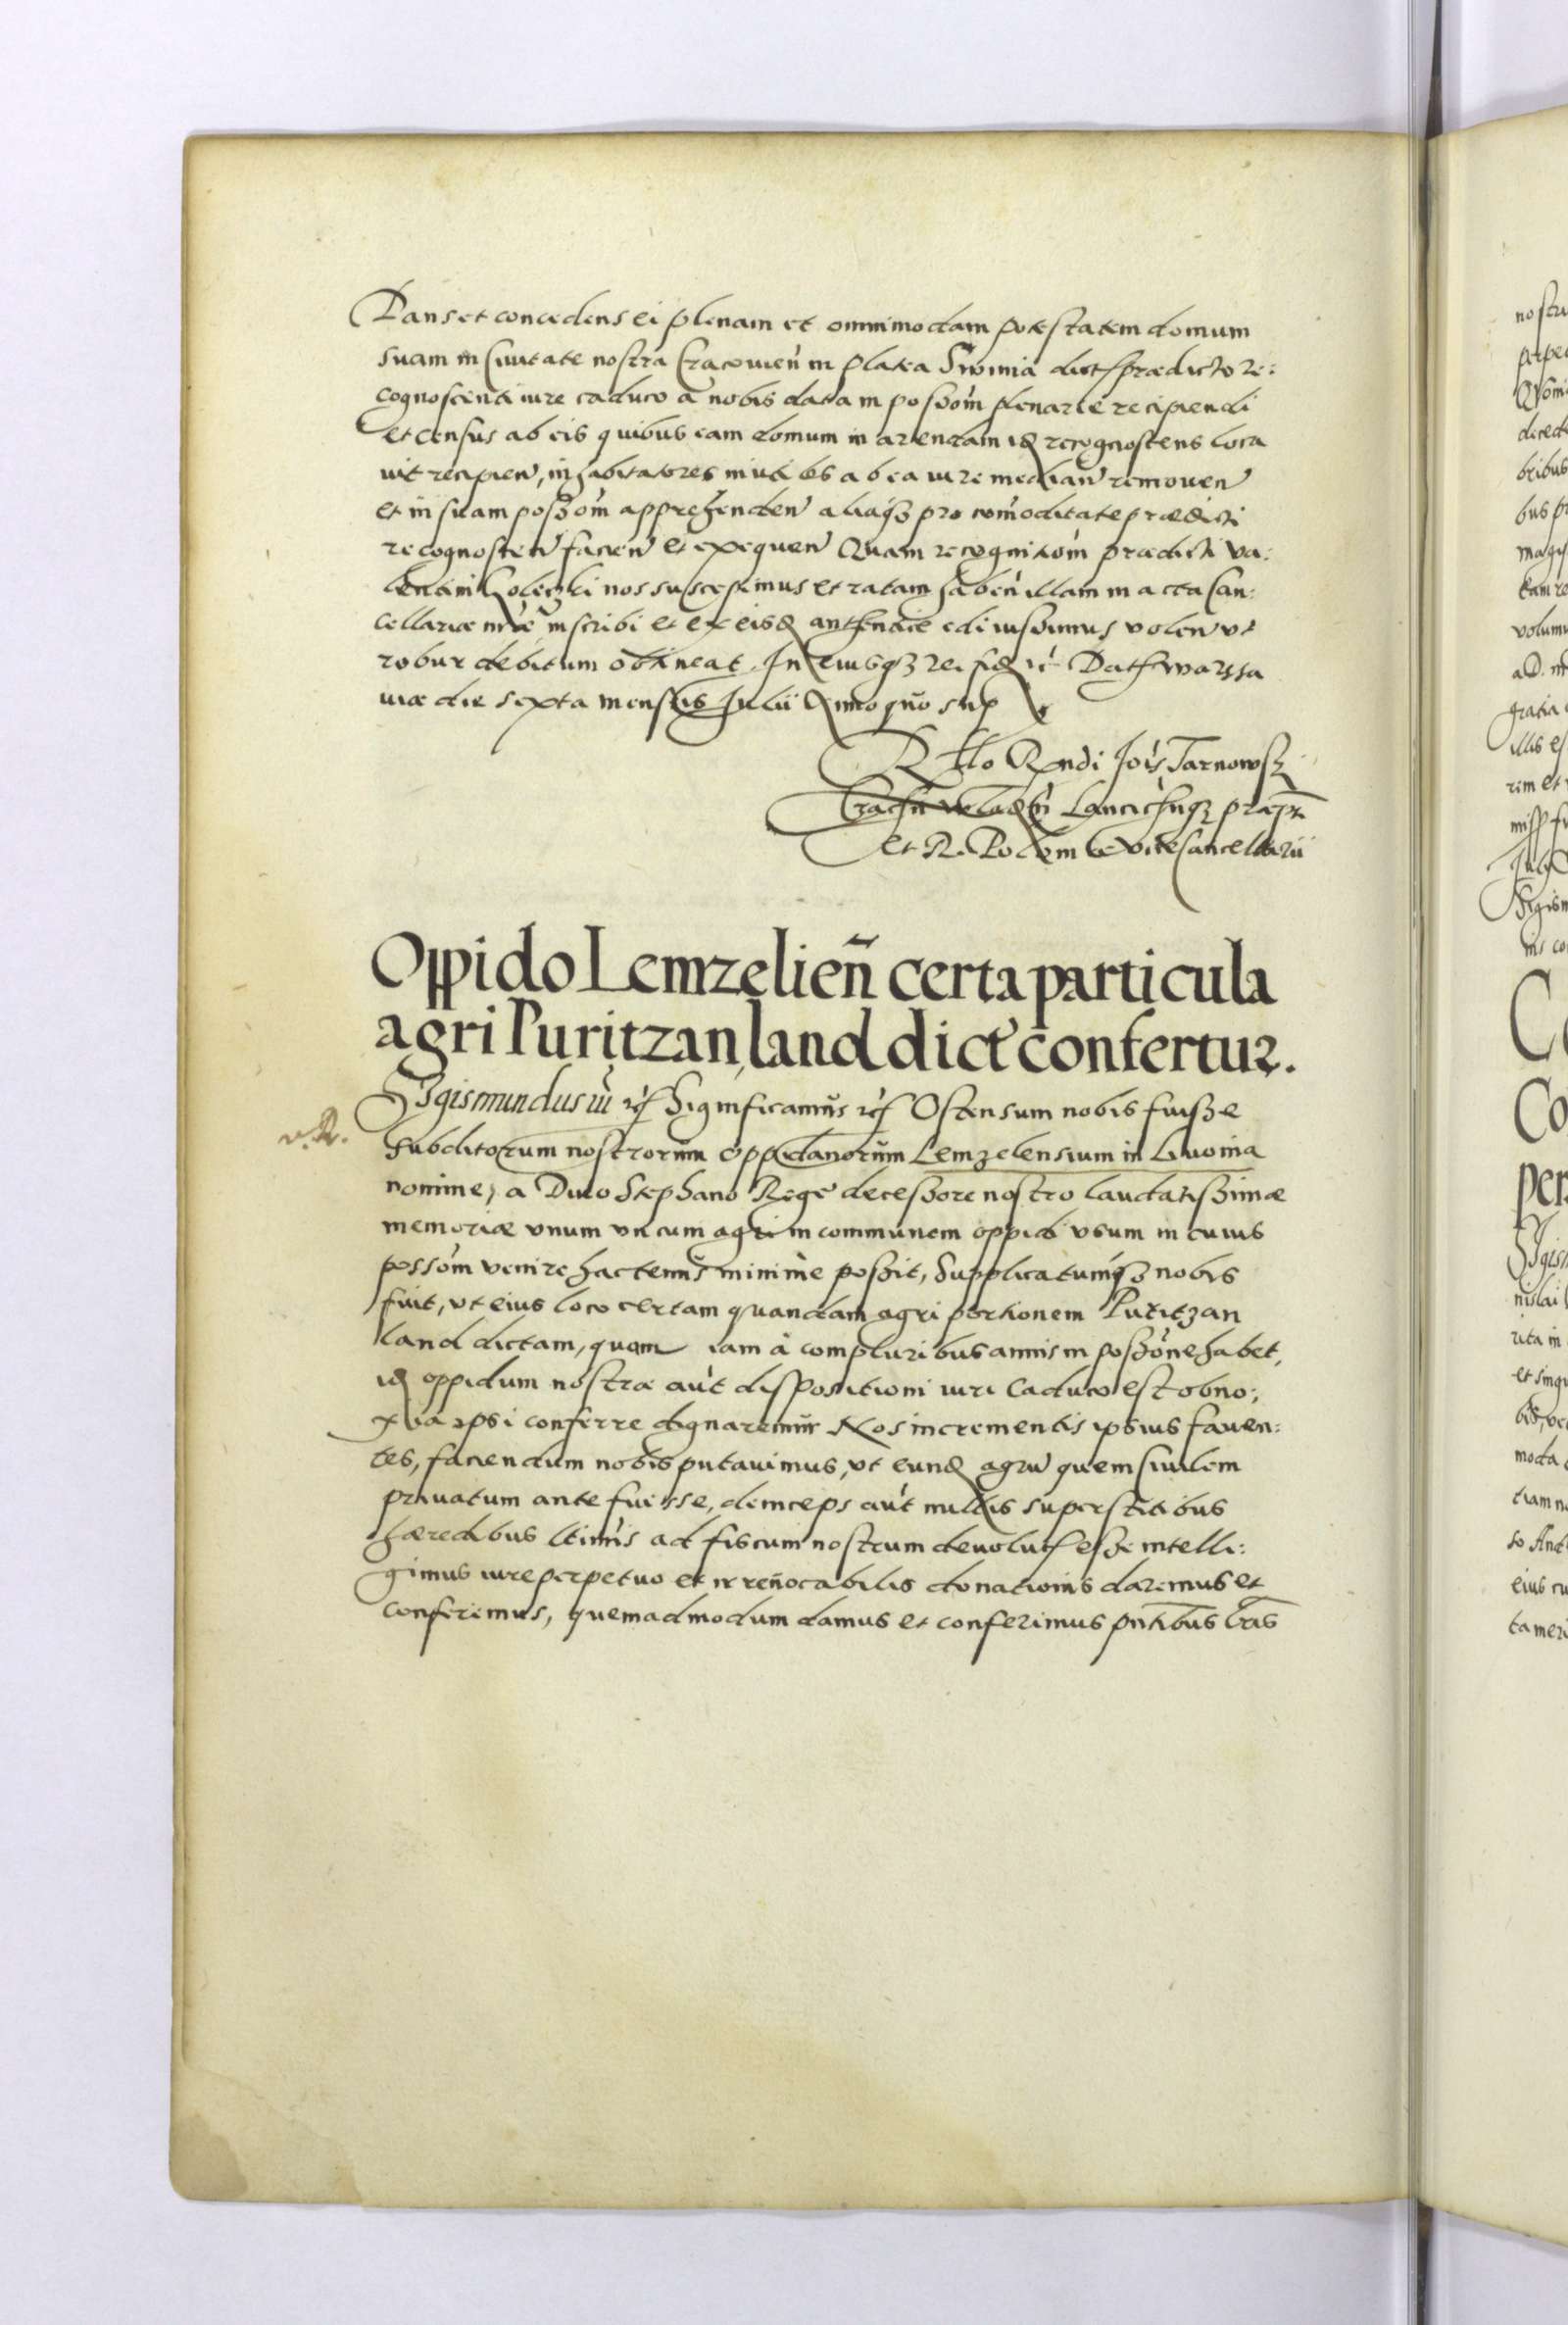 Dans et concedens ei plenam et omnimodam potestatem domum
suam in Civitate nostra Cracovien̄ in platea Swinia dict prædicto re:
cognoscenti iure caduco a nobis datam possiōm plenarie recipiendi
et census ab eis quibus eam domum in arendam idem recognoscens loca
vit recipien̄, inhabitatores inutiles ab ea iure median̄ removen̄
et in suam possiōm apprehenden̄ aliaqꝫ pro com̄oditate prædicti
recognoscen̄ facien̄ et exequen̄ Quam recognitiōm prædicti Va:
lentini nos suscepimus et ratam haben̄ illam in acta Can:
cellariæ nrāe inscribi et ex eisdem autentice edi iussimus volen̄ vt
robur debitum obtineat. In cuius qꝫ rei fidem ec̄ Dat Warssa
uiæ die sexta mensis Julii Anno quō sup
Rtło Rndi Joīs Tarnowsꝫ
Lancicīn qꝫ præpti
et R. Poloniæ ViceCancellarii
Oppido Lemzelien̄ certa particula
agri Puritzan, land dict confertur.
Sigismundus iii etc Significamus etc Ostensum nobis fuisse
v. R.
Subditorum nostrorum oppidanorum Lemzelensium in Livonia
nomine, a Divo Stephano Rege decessore nostro laudatissimæ
memoriæ vnum vncum agri in communem oppidi vsum in cuius
possōm venire hactenus minime possit, Supplicatumqꝫ nobis
fuit, vt eius loco certam quandam agri portionem Puritzan
land dictam, quam iam à compluribus annis in possiōne habet,
idem oppidum nostræ aūt dispositioni iuri Caduco est obno:
xia ipsi conferre dignaremur Nos incrementis ipsius faven:
tes, faciendum nobis putavimus, vt eundem agrū quem civilem
privatum ante fuisse, deinceps aūt nullis superstitibus
hæredibus ltimīs ad fiscum nostrum devolut esse intelli:
gimus iure perpetuo et irrevocabilis donationis daremus et
conferemus, quemadmodum damus et conferimus pn̄tibus lr̄is